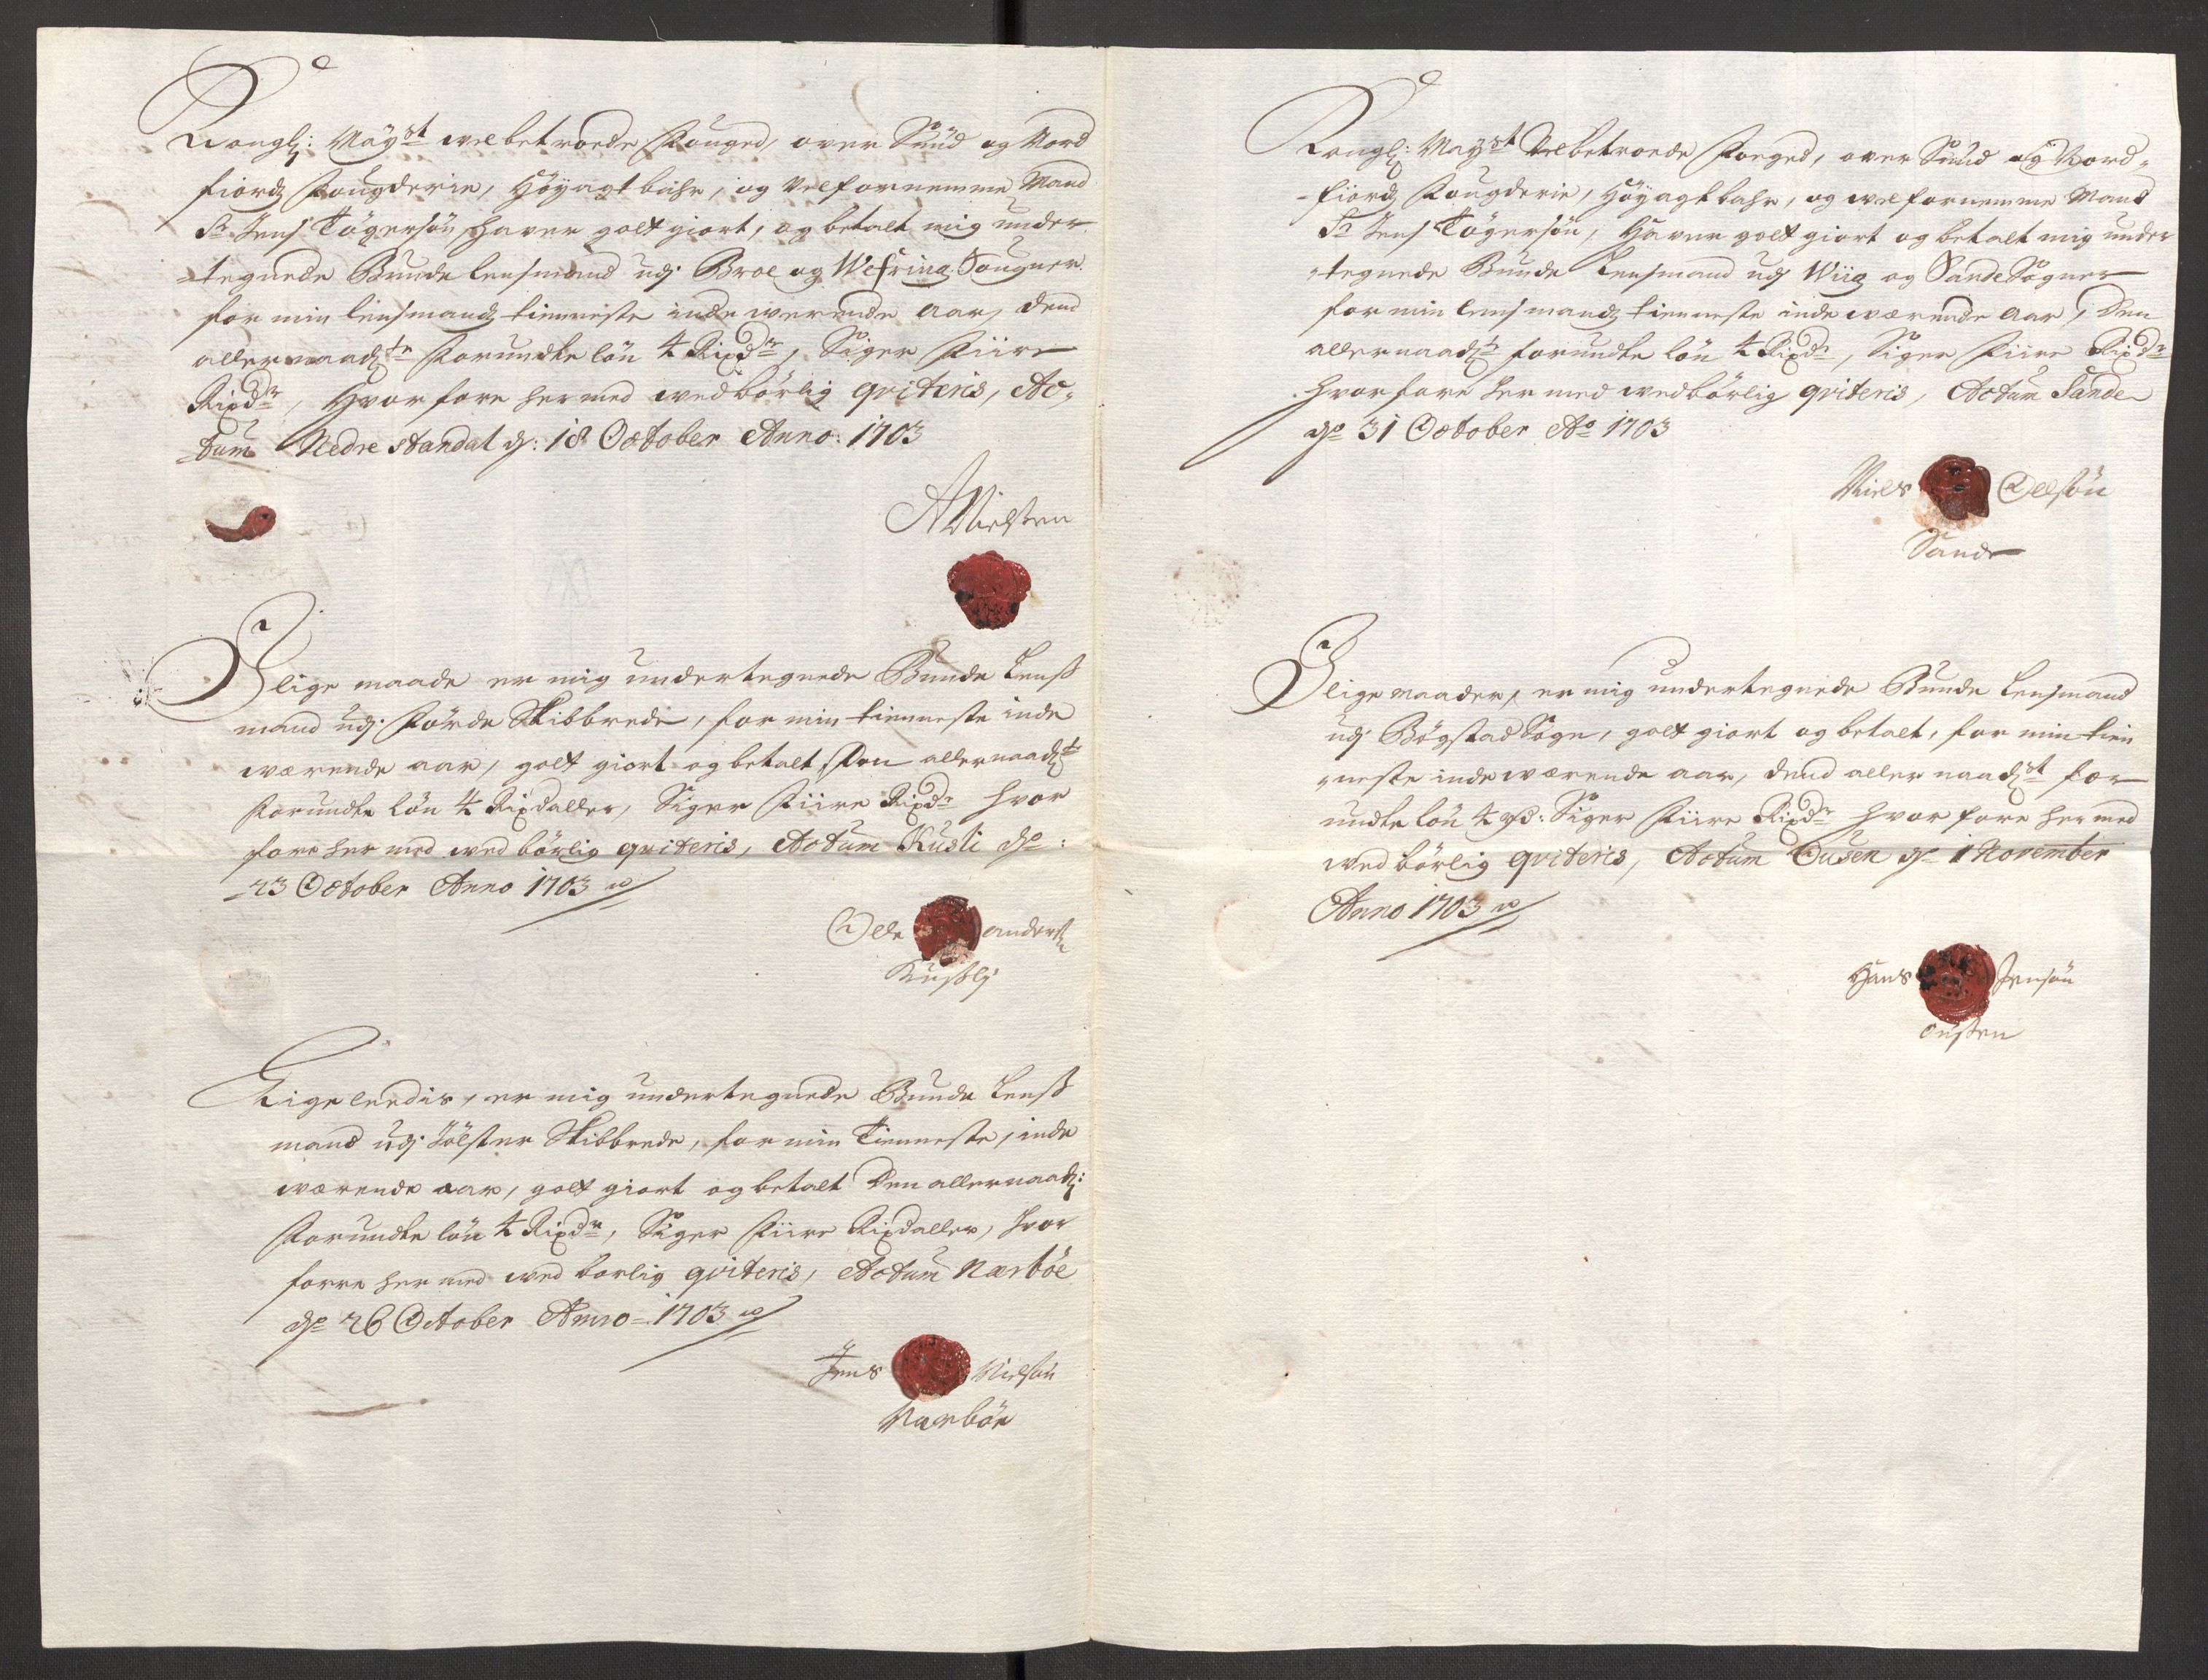 Kongl: Mayst welbetroede Fouged, over Sund og Nord
fiords Fougderie, Höyagtbahr, og Velfornemme Mand
Sr Jens Tögersön, haver gott giort, og betalt mig under
tegnede Bunde lensmand udj Broe og Wefring Sougner
for min lensmands tienneste inde werende aar, dend
allernaadste forundte lön 4 Rixdr, Siger Fiire
Rixdr, Hvorfore hermed wedbörlig qviteris, Ac-
tum Nedre Standal d: 18 October Anno: 1703
ANielsen
Dlige maade er mig undertegnede Bunde Lens
mand udj Förde Skibbrede, for min tienneste inde
wærende aar, gott giort og betalt Den allernaadste
forundte lön 4 Rixdaller, Siger Fiire Rixdr hvor
fore her med wedbörlig qviteris, Actum Kusli do:
23 October Anno 1703
Olle anders
Kusslj
Lige leedis, er mig undertegnede Bunde Lens
mand udj Jölster Skibbrede, for min Tienneste, inde
wærende aar, gott giort og betalt Den allernaads:
forundte lön 4 Rixdr, Siger Fiire Rixdaller, hvor
forre her med wed borlig qviteris, Actum Narböe
do 26 October Anno 1703
Jens Nielsön
Narböe
Kongl: Mayst Velbetroede Foged, over Sund og Nord-
fiords Fougderie, Höyagtbahr, og welfornemme Mand
Sr Jens Tögersön, Haver gott giort og betalt mig under
tegnede Bunde Lensmand udj Wiig og Sande Sogner
for min lensmands tienneste inde wærende aar, Den
allernaadste forundte lön 4 Rixdr, Siger Fiire Rixdr
hvorfore her med wedbörlig qviteris, Actum Sande
do 31 October Ao 1703
Niels Ollsön
Sande
Dlige maader, er mig undertegnede Bunde Lensmand
udj Bögstad Sogn, gott giort og betalt, for min tien
neste inde wærende aar, dend aller naadst for
undte lön 4 rd: Siger Fiire Rixdr hvor fore her med
wedbörlig qviteris, Actum Ousen do 1 November
Anno 1703
Hans Jensön
Ousen